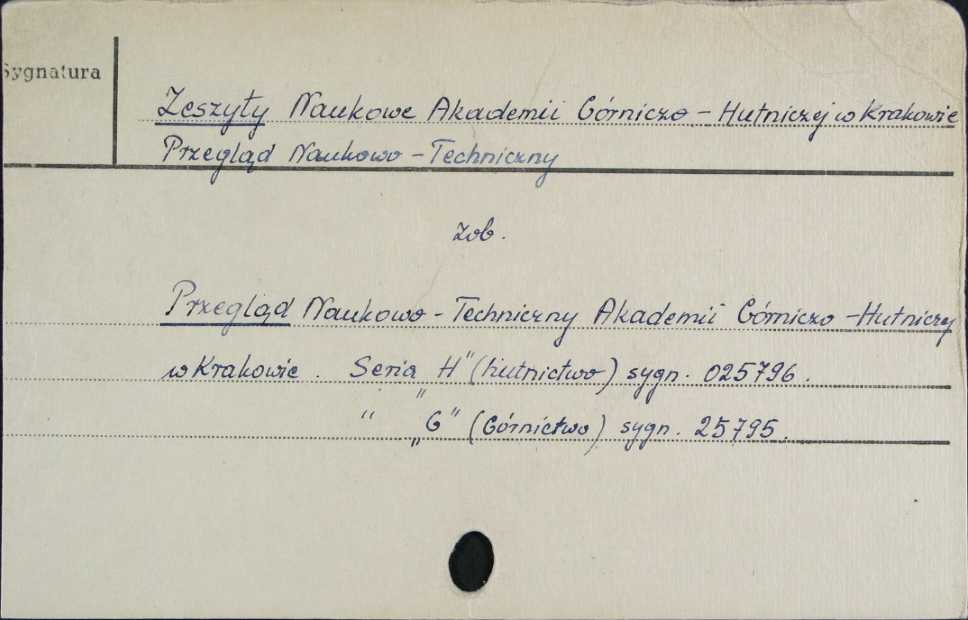 Sygnatura
Zeszyty Naukowe Akademii Górniczo - Hutniczej w Krakowie
Przegląd Naukowo - Techniczny
zob.
Przegląd Naukowo - Techniczny Akademii Górniczo - Hutniczej
w Krakowie. Seria „H" (hutnictwo) sygn. 025796.
" „G" (Górnictwo) sygn. 25795.